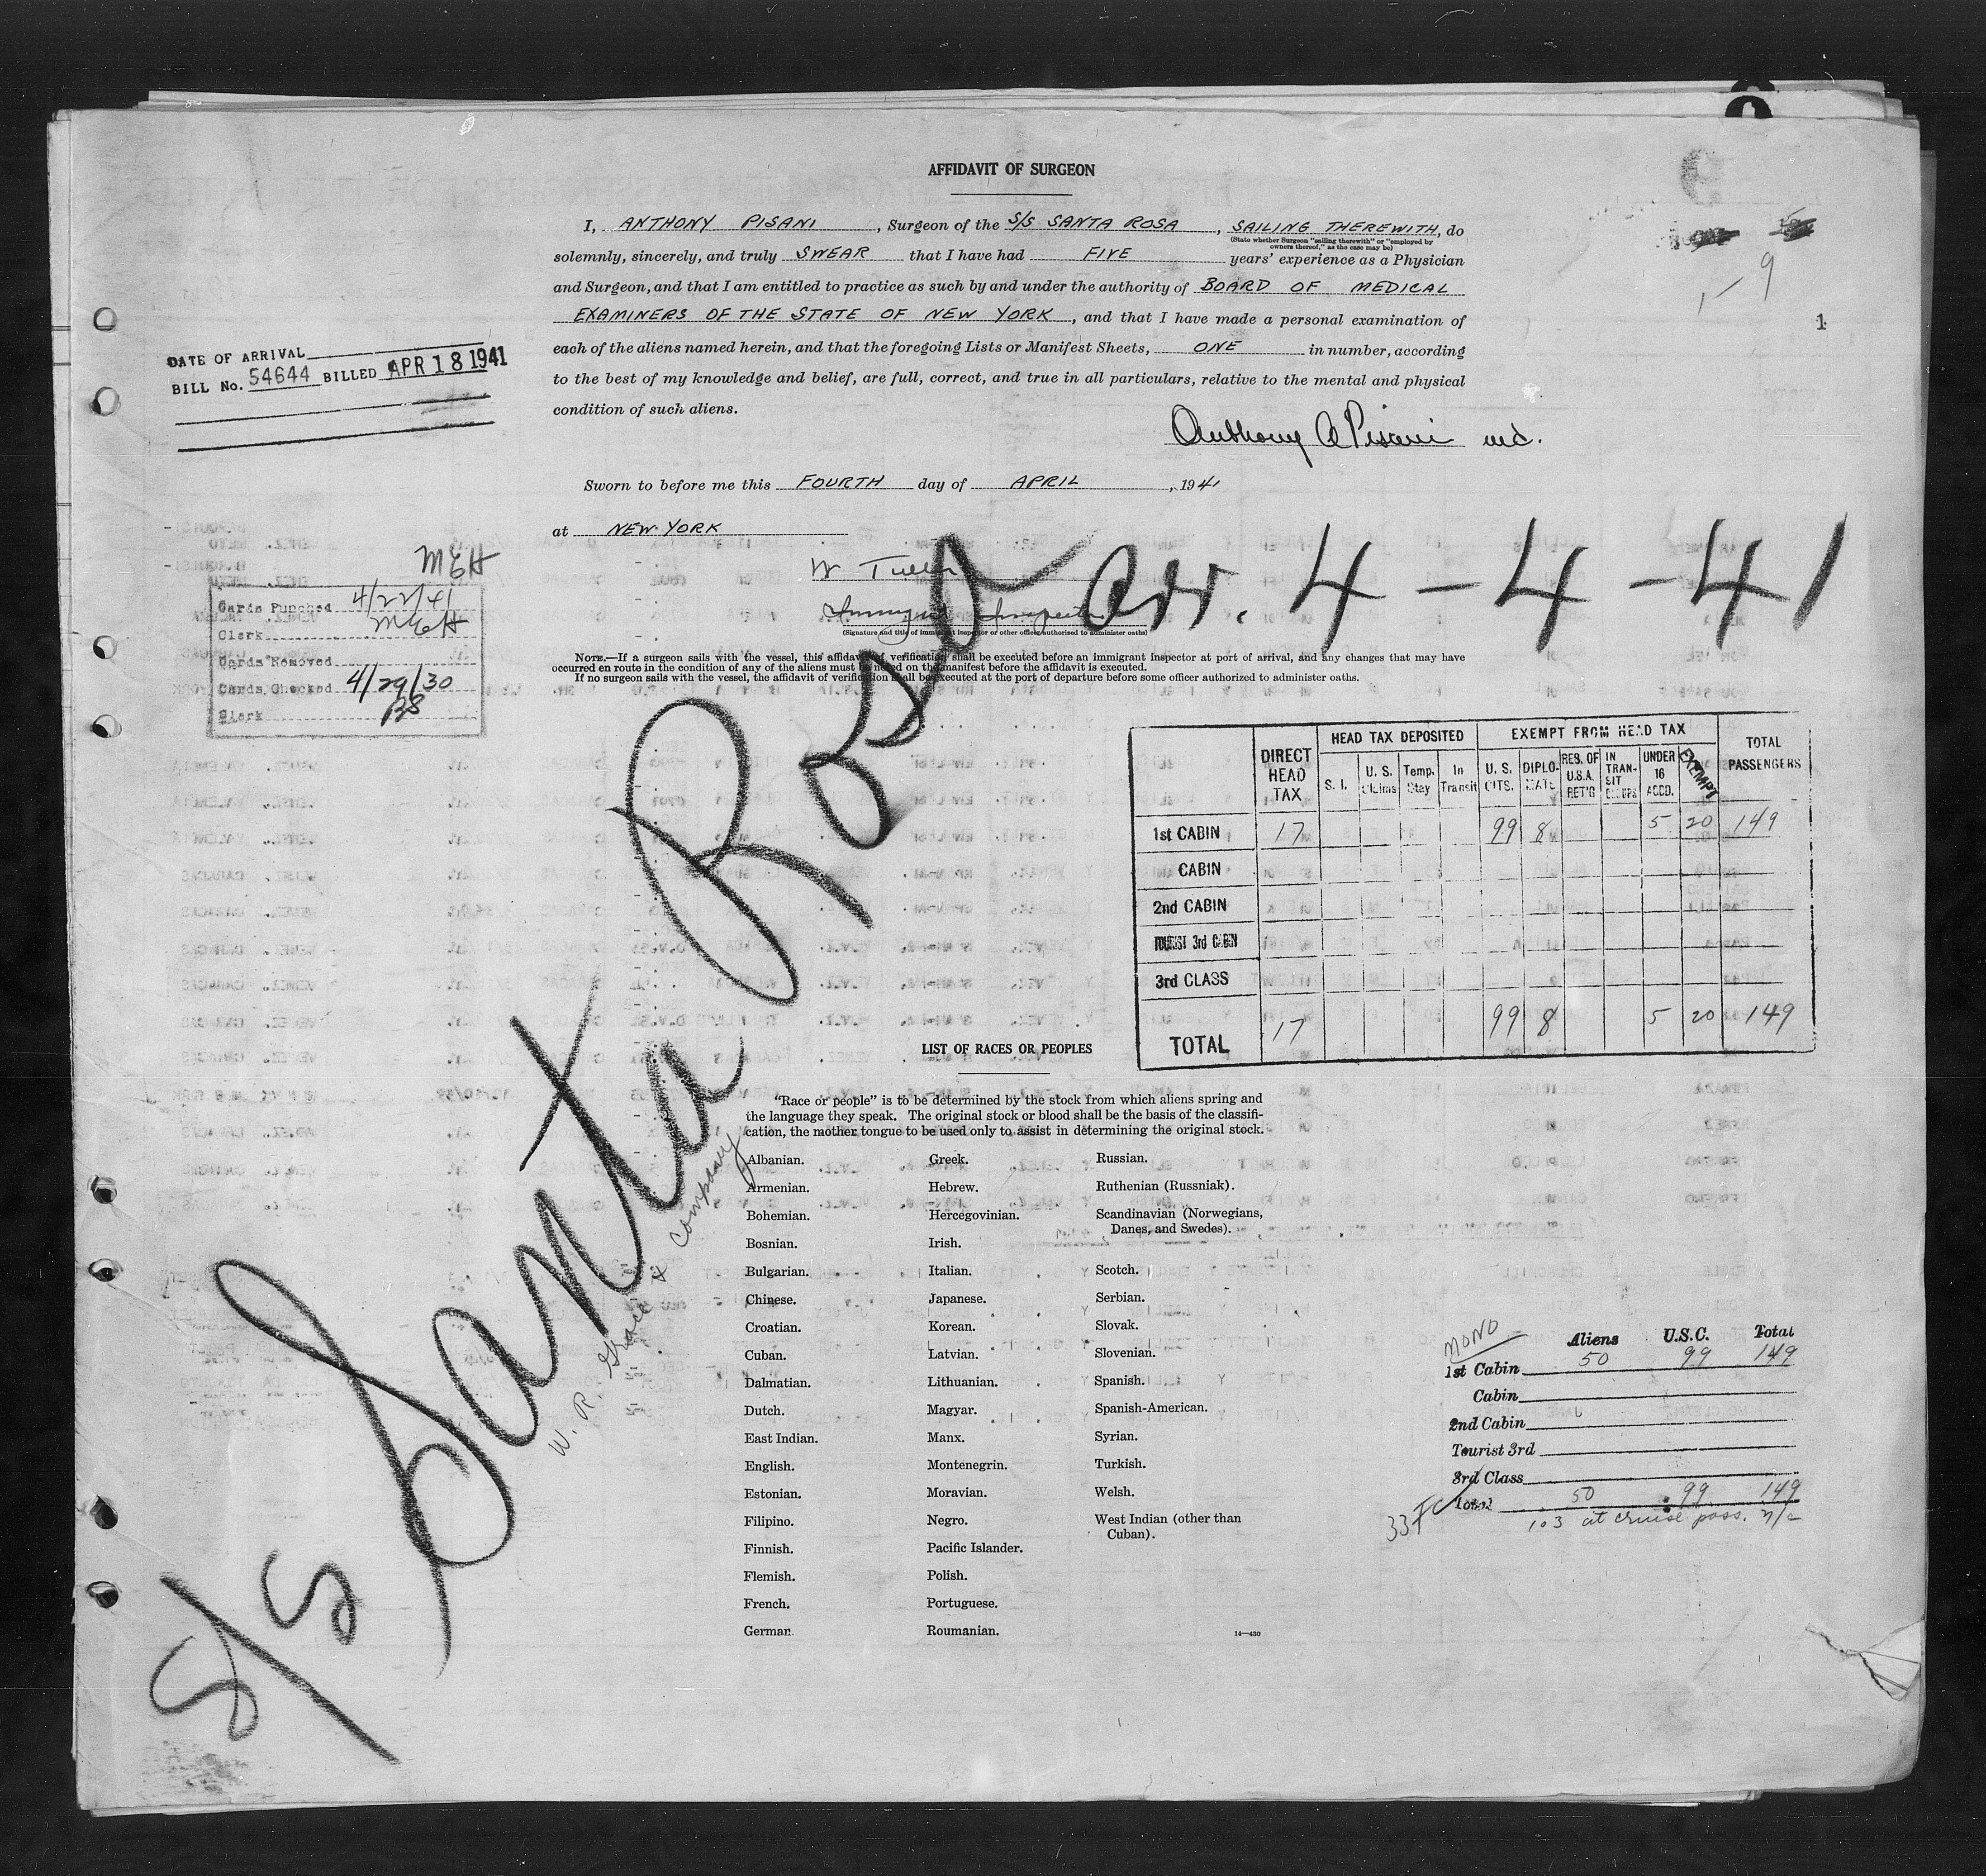 AFFIDAVIT OF SURGEON
I, ANTHONY PISANI, Surgeon of the S/S SANTA ROSA, SAILING THEREWITH, do
(State whether Surgeon "sailing therewith" or "employed by
owners thereof," as the case may be)
solemnly, sincerely, and truly SWEAR that I have had FIVE years' experience as a Physician
and Surgeon, and that I am entitled to practice as such by and under the authority of BOARD OF MEDICAL
EXAMINERS OF THE STATE OF NEW YORK, and that I have made a personal examination of
each of the aliens named herein, and that the foregoing Lists or Manifest Sheets, ONE in number, according
to the best of my knowledge and belief, are full, correct, and true in all particulars, relative to the mental and physical
condition of such aliens.
Anthony A Pisani md.
Sworn to before me this FOURTH day of APRIL, 1941
at NEW YORK
W
Inspector
(Signature and title of immigrant inspector or other officer authorised to administer oaths)
NOTE.—If a surgeon sails with the vessel, this affidavit of verification shall be executed before an immigrant inspector at port of arrival, and any changes that may have
occurred en route in the condition of any of the aliens must be noted on the manifest before the affidavit is executed.
If no surgeon sails with the vessel, the affidavit of verification shall be executed at the port of departure before some officer authorized to administer oaths.
1-9
1
DATE OF ARRIVAL
BILL No. 54644 BILLED APR 18 1941
MEH
Cards Punched 4/22/41
Clerk MEH
Cards Removed
Cards Checked 4/29/30
Clerk
S/S Santa Rosa Arr. 4-4-41
W. R. Grace & Company
DIRECT HEAD TAX
HEAD TAX DEPOSITED
EXEMPT FROM HEAD TAX
TOTAL PASSENGERS
S. I. U. S. Claims Temp. Stay In Transit U. S. CITS. DIPLOMATS RES. OF U.S.A. RET'G IN TRANSIT GROUPS UNDER 16 ACCD. EXEMPT
1st CABIN 17 99 8 5 20 149
CABIN
2nd CABIN
TOURIST 3rd CABIN
3rd CLASS
TOTAL 17 99 8 5 20 149
LIST OF RACES OR PEOPLES
"Race or people" is to be determined by the stock from which aliens spring and
the language they speak. The original stock or blood shall be the basis of the classifi-
cation, the mother tongue to be used only to assist in determining the original stock.
Albanian.
Armenian.
Bohemian.
Bosnian.
Bulgarian.
Chinese.
Croatian.
Cuban.
Dalmatian.
Dutch.
East Indian.
English.
Estonian.
Filipino.
Finnish.
Flemish.
French.
German.
Greek.
Hebrew.
Hercegovinian.
Irish.
Italian.
Japanese.
Korean.
Latvian.
Lithuanian.
Magyar.
Manx.
Montenegrin.
Moravian.
Negro.
Pacific Islander.
Polish.
Portuguese.
Roumanian.
Russian.
Ruthenian (Russniak).
Scandinavian (Norwegians,
Danes, and Swedes).
Scotch.
Serbian.
Slovak.
Slovenian.
Spanish.
Spanish-American.
Syrian.
Turkish.
Welsh.
West Indian (other than
Cuban).
14—430
MONO
Aliens U.S.C. Total
1st Cabin 50 99 149
Cabin
2nd Cabin
Tourist 3rd
3rd Class
Total 50 99 149
103 at cruise pass. n/c